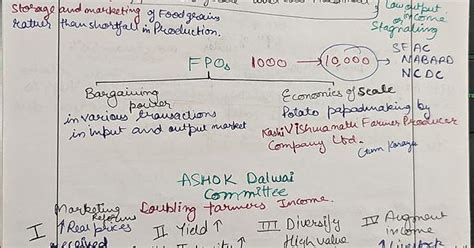 Storage and marketing of Foodgrains
rather than shortfall in Production.
Low output
or income
Stagnating
FPOs 1000 → 10,000 → SFAC
NABARD
NCDC
Bargaining
power
in various transactions
in input and output market
Economics of Scale
Potato papad making by
Kashi Vishwanath Farmer Producer
Company Ltd.
ASHOK Dalwai
Committee
Doubling farmers Income.
I Marketing
Reforms
↑ Real prices
received
II Yield ↑
III Diversify
High value
IV Augment
income